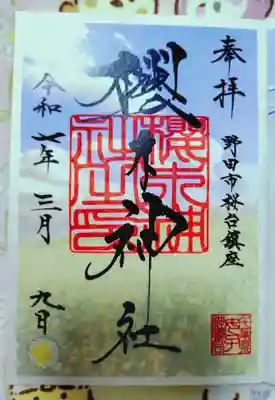 奉拝
野田市桜台鎮座
櫻木神社
櫻木神社之印
令和七年三月九日